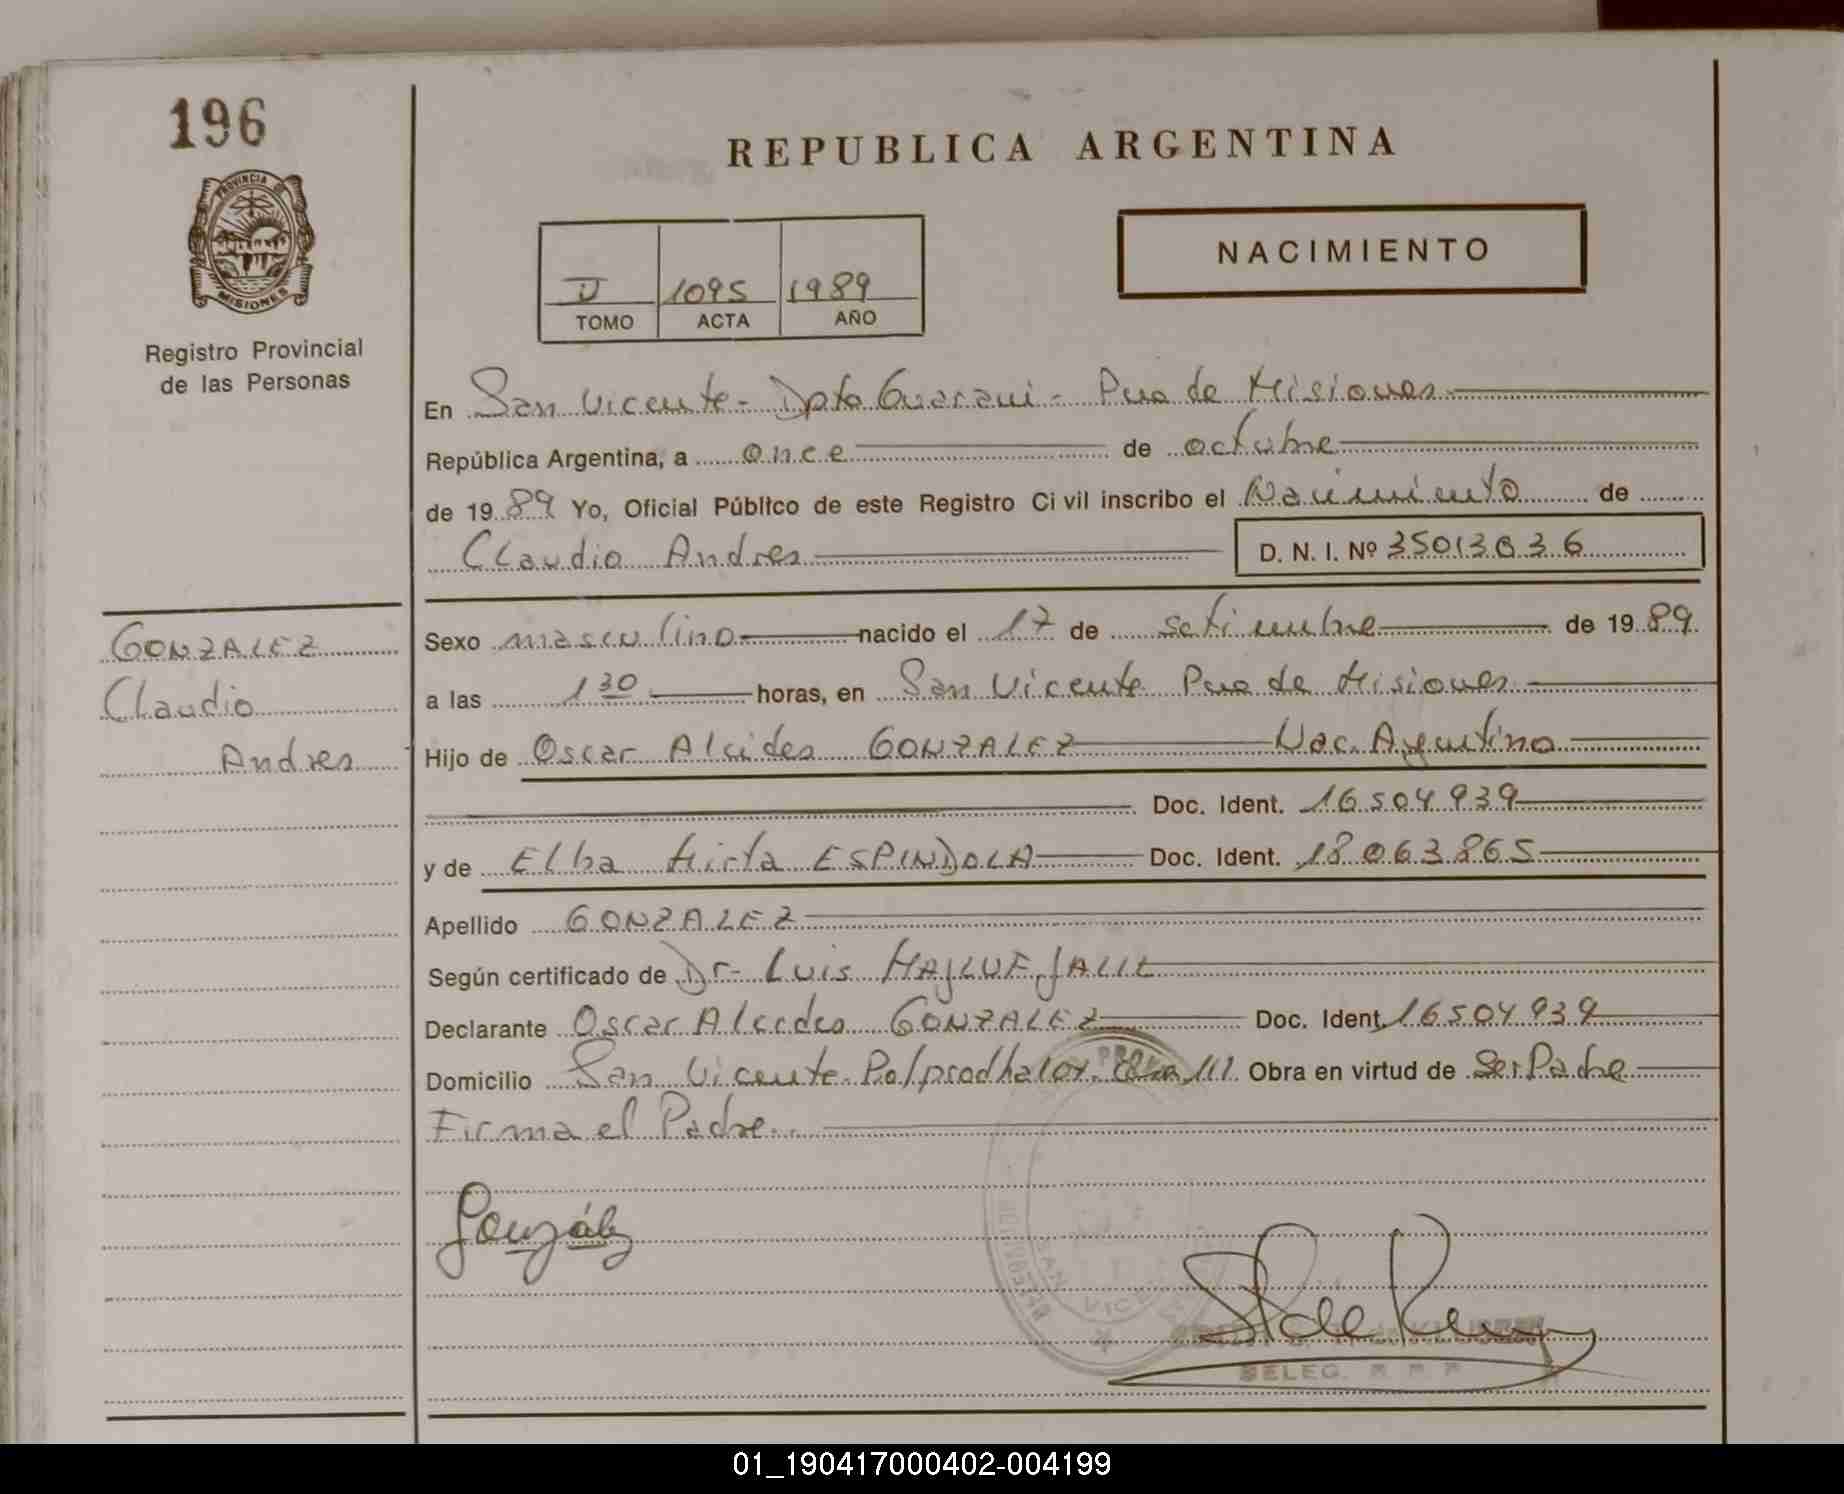 196
PROVINCIA DE
MISIONES
Registro Provincial
de las Personas
GONZALEZ
Claudio
Andres
REPUBLICA ARGENTINA
NACIMIENTO
II 1095 1989
TOMO ACTA AÑO
En San Vicente - Dpto Guarani - Pcia de Misiones
República Argentina, a once de octubre
de 1989 Yo, Oficial Público de este Registro Civil inscribo el Nacimiento de
Claudio Andres D. N. I. Nº 35013036
Sexo masculino nacido el 17 de setiembre de 1989
a las 1 30 horas, en San Vicente Pcia de Misiones
Hijo de Oscar Alcides GONZALEZ Nac. Argentino
Doc. Ident. 16504939
y de Elba Mirta ESPINDOLA Doc. Ident. 18063865
Apellido GONZALEZ
Según certificado de Dr- Luis
Declarante Oscar Alcides GONZALEZ Doc. Ident. 16504939
Domicilio San Vicente Obra en virtud de Ser Padre
Firma el Padre
González
SAN VIC
DELEG. R P P
01_190417000402-004199